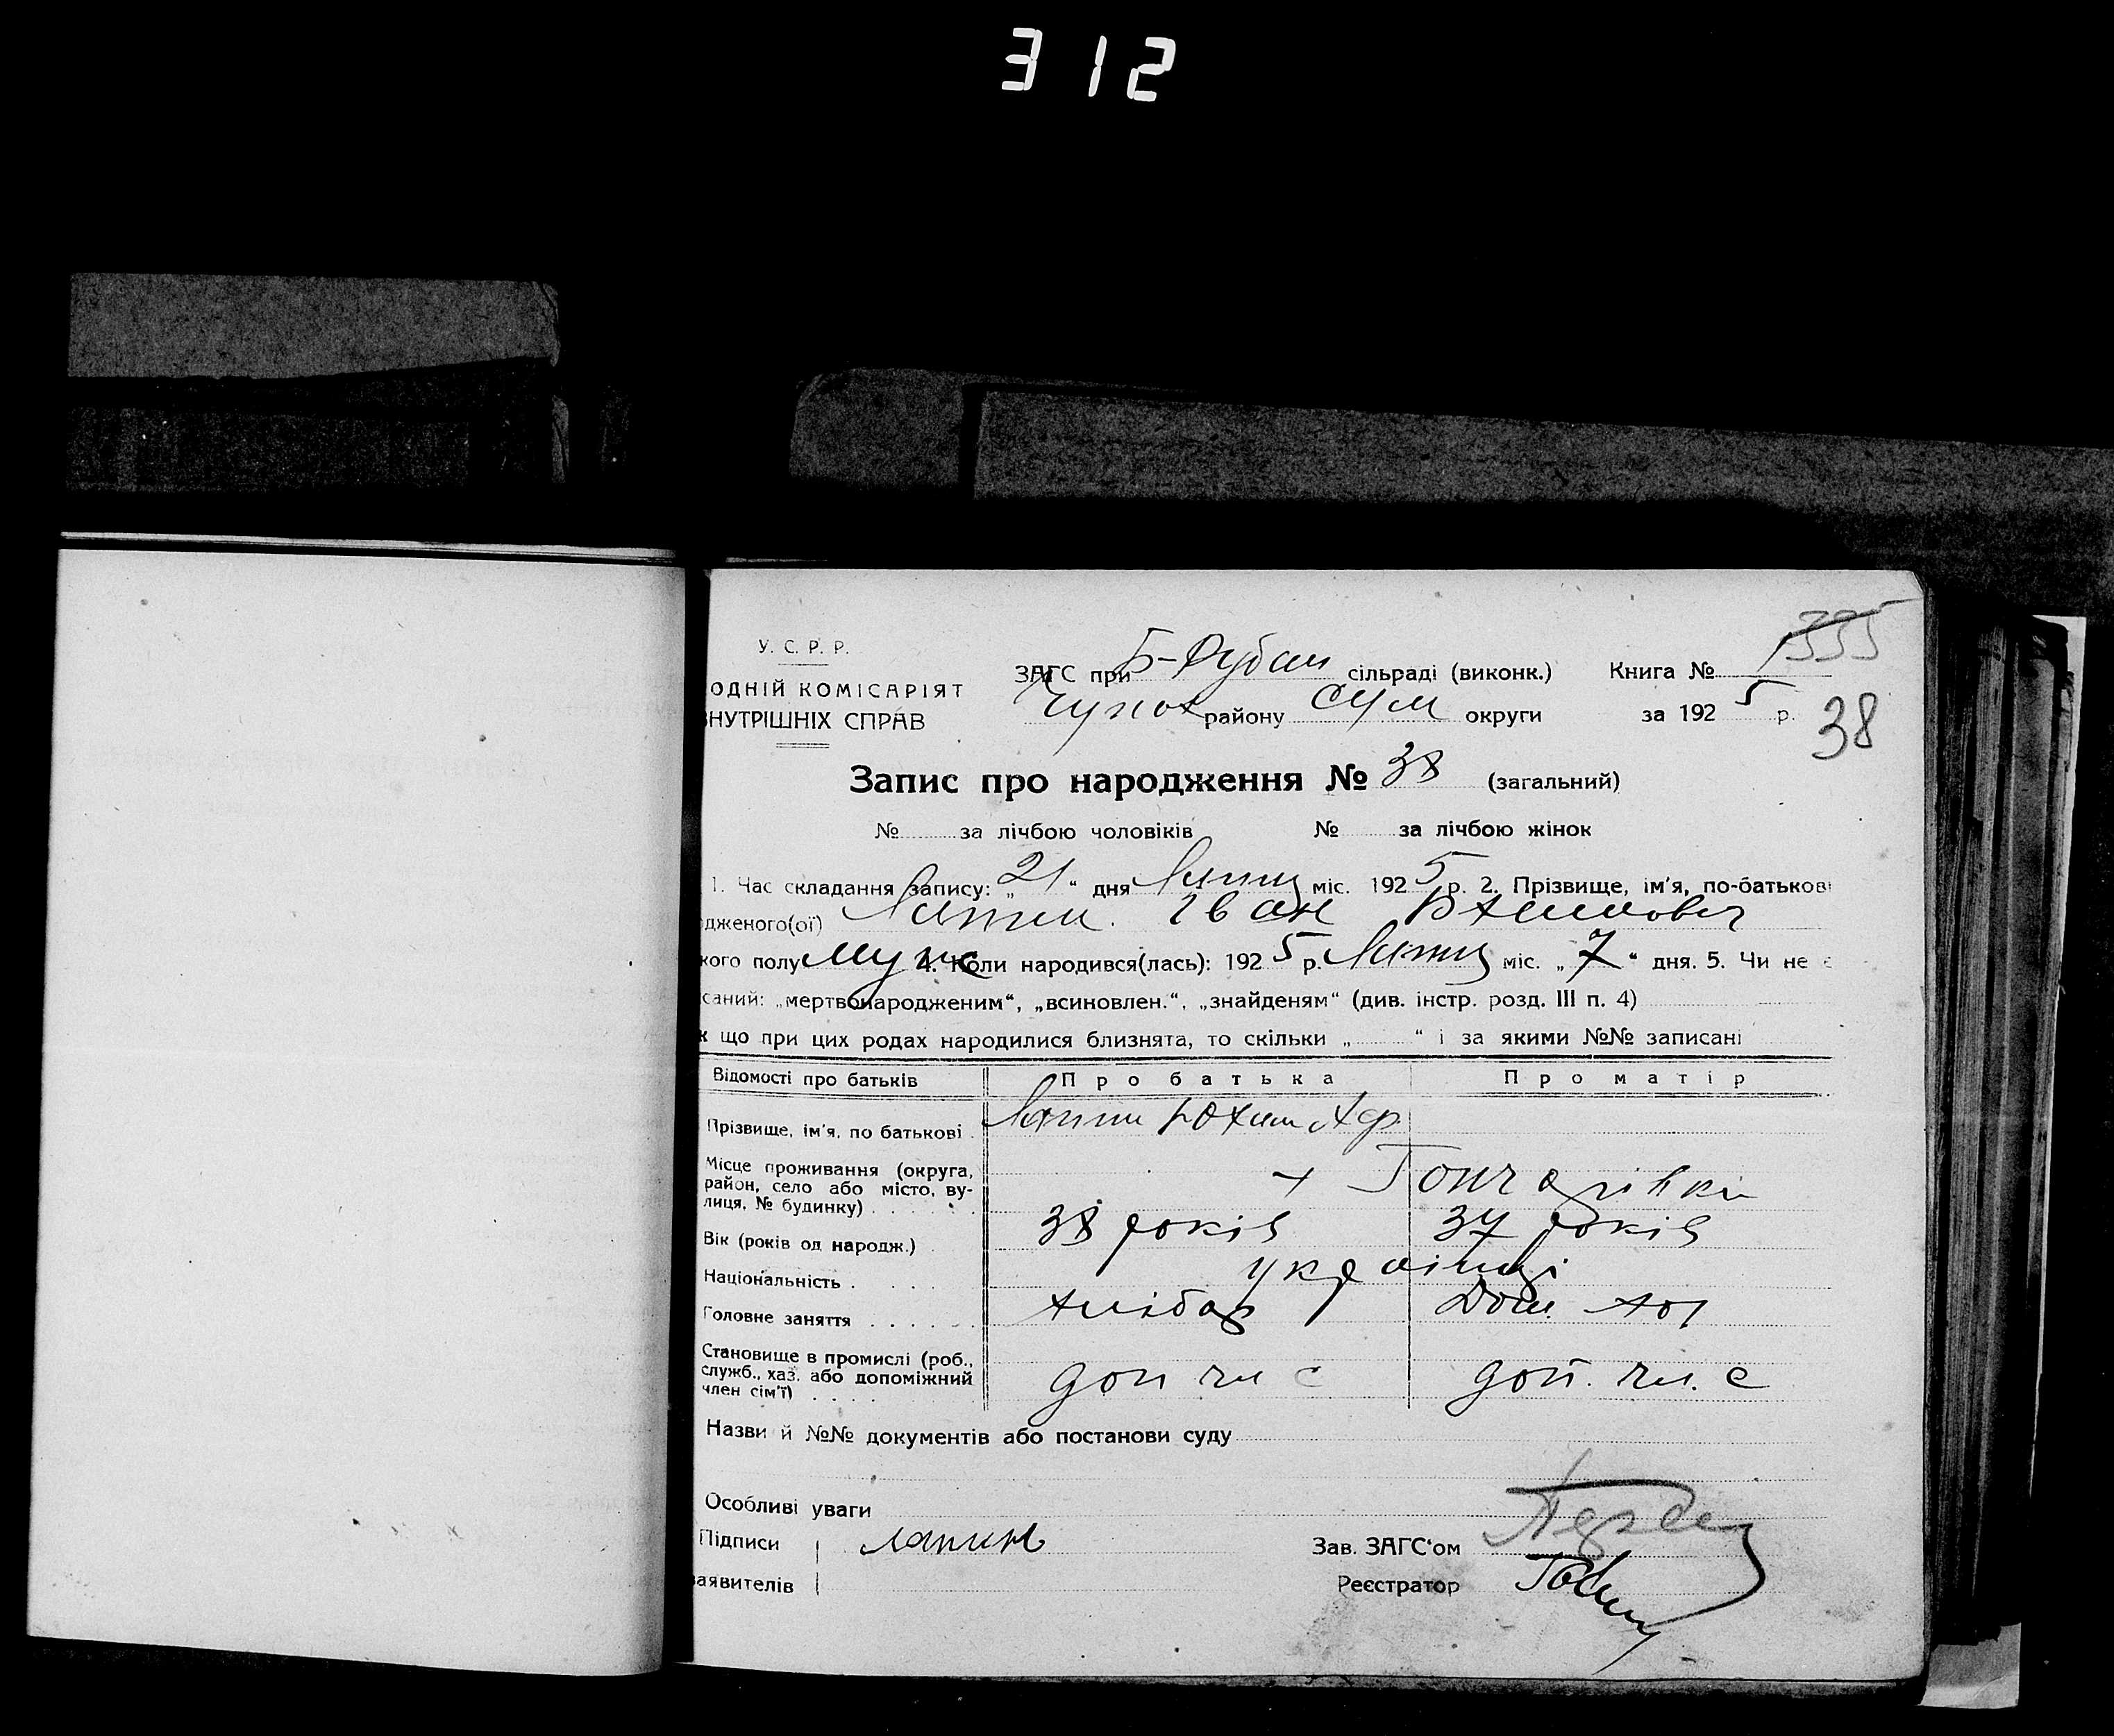 312
У. С. Р. Р.
ОДНІЙ КОМІСАРІЯТ
НУТРІШНІХ СПРАВ
ЗАГС при Б-Рубан сільраді (виконк.) Книга №
району Сум округи за 1925 р.
335
38
Запис про народження № 38 (загальний)
№ за лічбою чоловіків № за лічбою жінок
1. Час складання запису: „21“ дня міс. 1925 р. 2. Прізвище, ім'я, по-батькові
дженого(ої) Іван
кого полу муж 4. Коли народився(лась): 1925 р. міс. „7“ дня. 5. Чи не є
саний: „мертвонародженим“, „всиновлен.“, „знайденям“ (див. інстр. розд. III п. 4)
к що при цих родах народилися близнята, то скільки „ “ і за якими №№ записані
Відомості про батьків Про батька Про матір
Прізвище, ім'я, по батькові
Місце проживання (округа,
район, село або місто, ву-
лиця, № будинку) х Гончарівка
Вік (років од народж.) 38 років 37 років
Національність українці
Головне заняття хлібор Дом. хоз
Становище в промислі (роб.,
служб., хаз. або допоміжний
член сім'ї) доп чл с доп. чл. с
Назви й №№ документів або постанови суду
Особливі уваги
Підписи лапин
Зав. ЗАГС'ом
аявителів Реєстратор